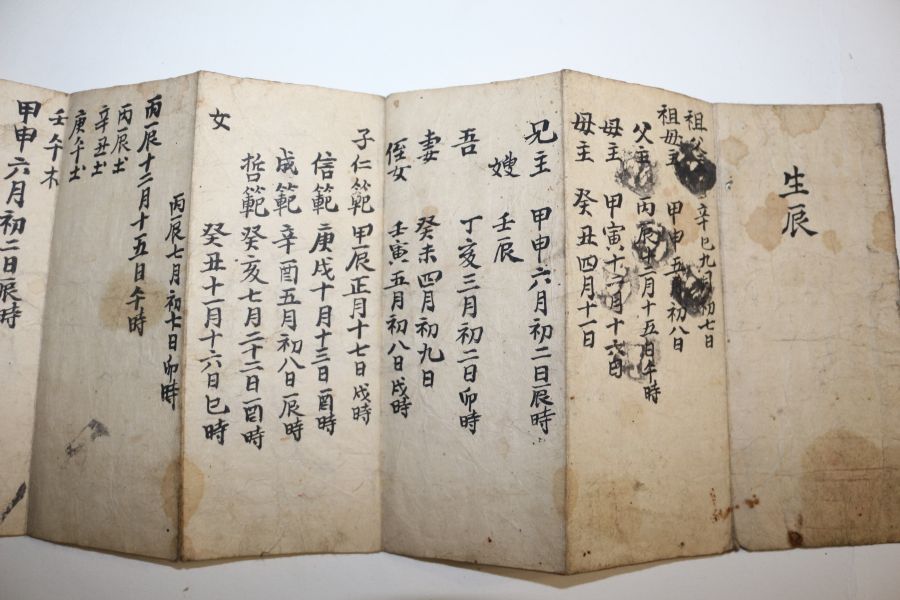 生辰
祖父主 辛巳九月初七日
祖母主 甲申五月初八日
父主 丙辰十二月十五日午時
母主 甲寅十一月十六日
母主 癸丑四月十一日
兄主 甲申六月初二日辰時
嫂 壬辰
吾 丁亥三月初二日卯時
妻 癸未四月初九日
侄女 壬寅五月初八日戌時
子仁範 甲辰正月十七日戌時
信範 庚戌十月十三日酉時
成範 辛酉五月初八日辰時
哲範 癸亥七月二十二日酉時
女 癸丑十一月十六日巳時
丙辰七月初十日卯時
丙辰十二月十五日午時
丙辰土
辛丑土
庚午土
壬午木
甲申六月初二日辰時